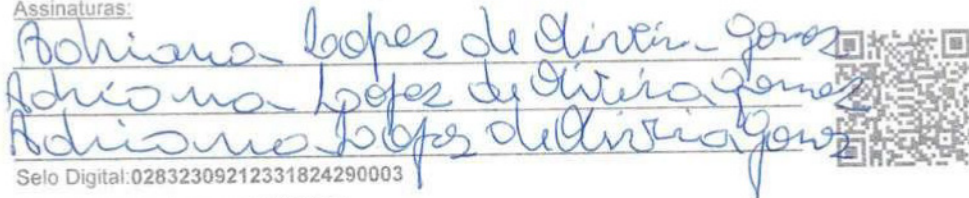 Assinaturas:
Adriana Lopes de Oliveira Gomes
Adriana Lopes de Oliveira Gomes
Adriana Lopes de Oliveira Gomes
Selo Digital:02832309212331824290003